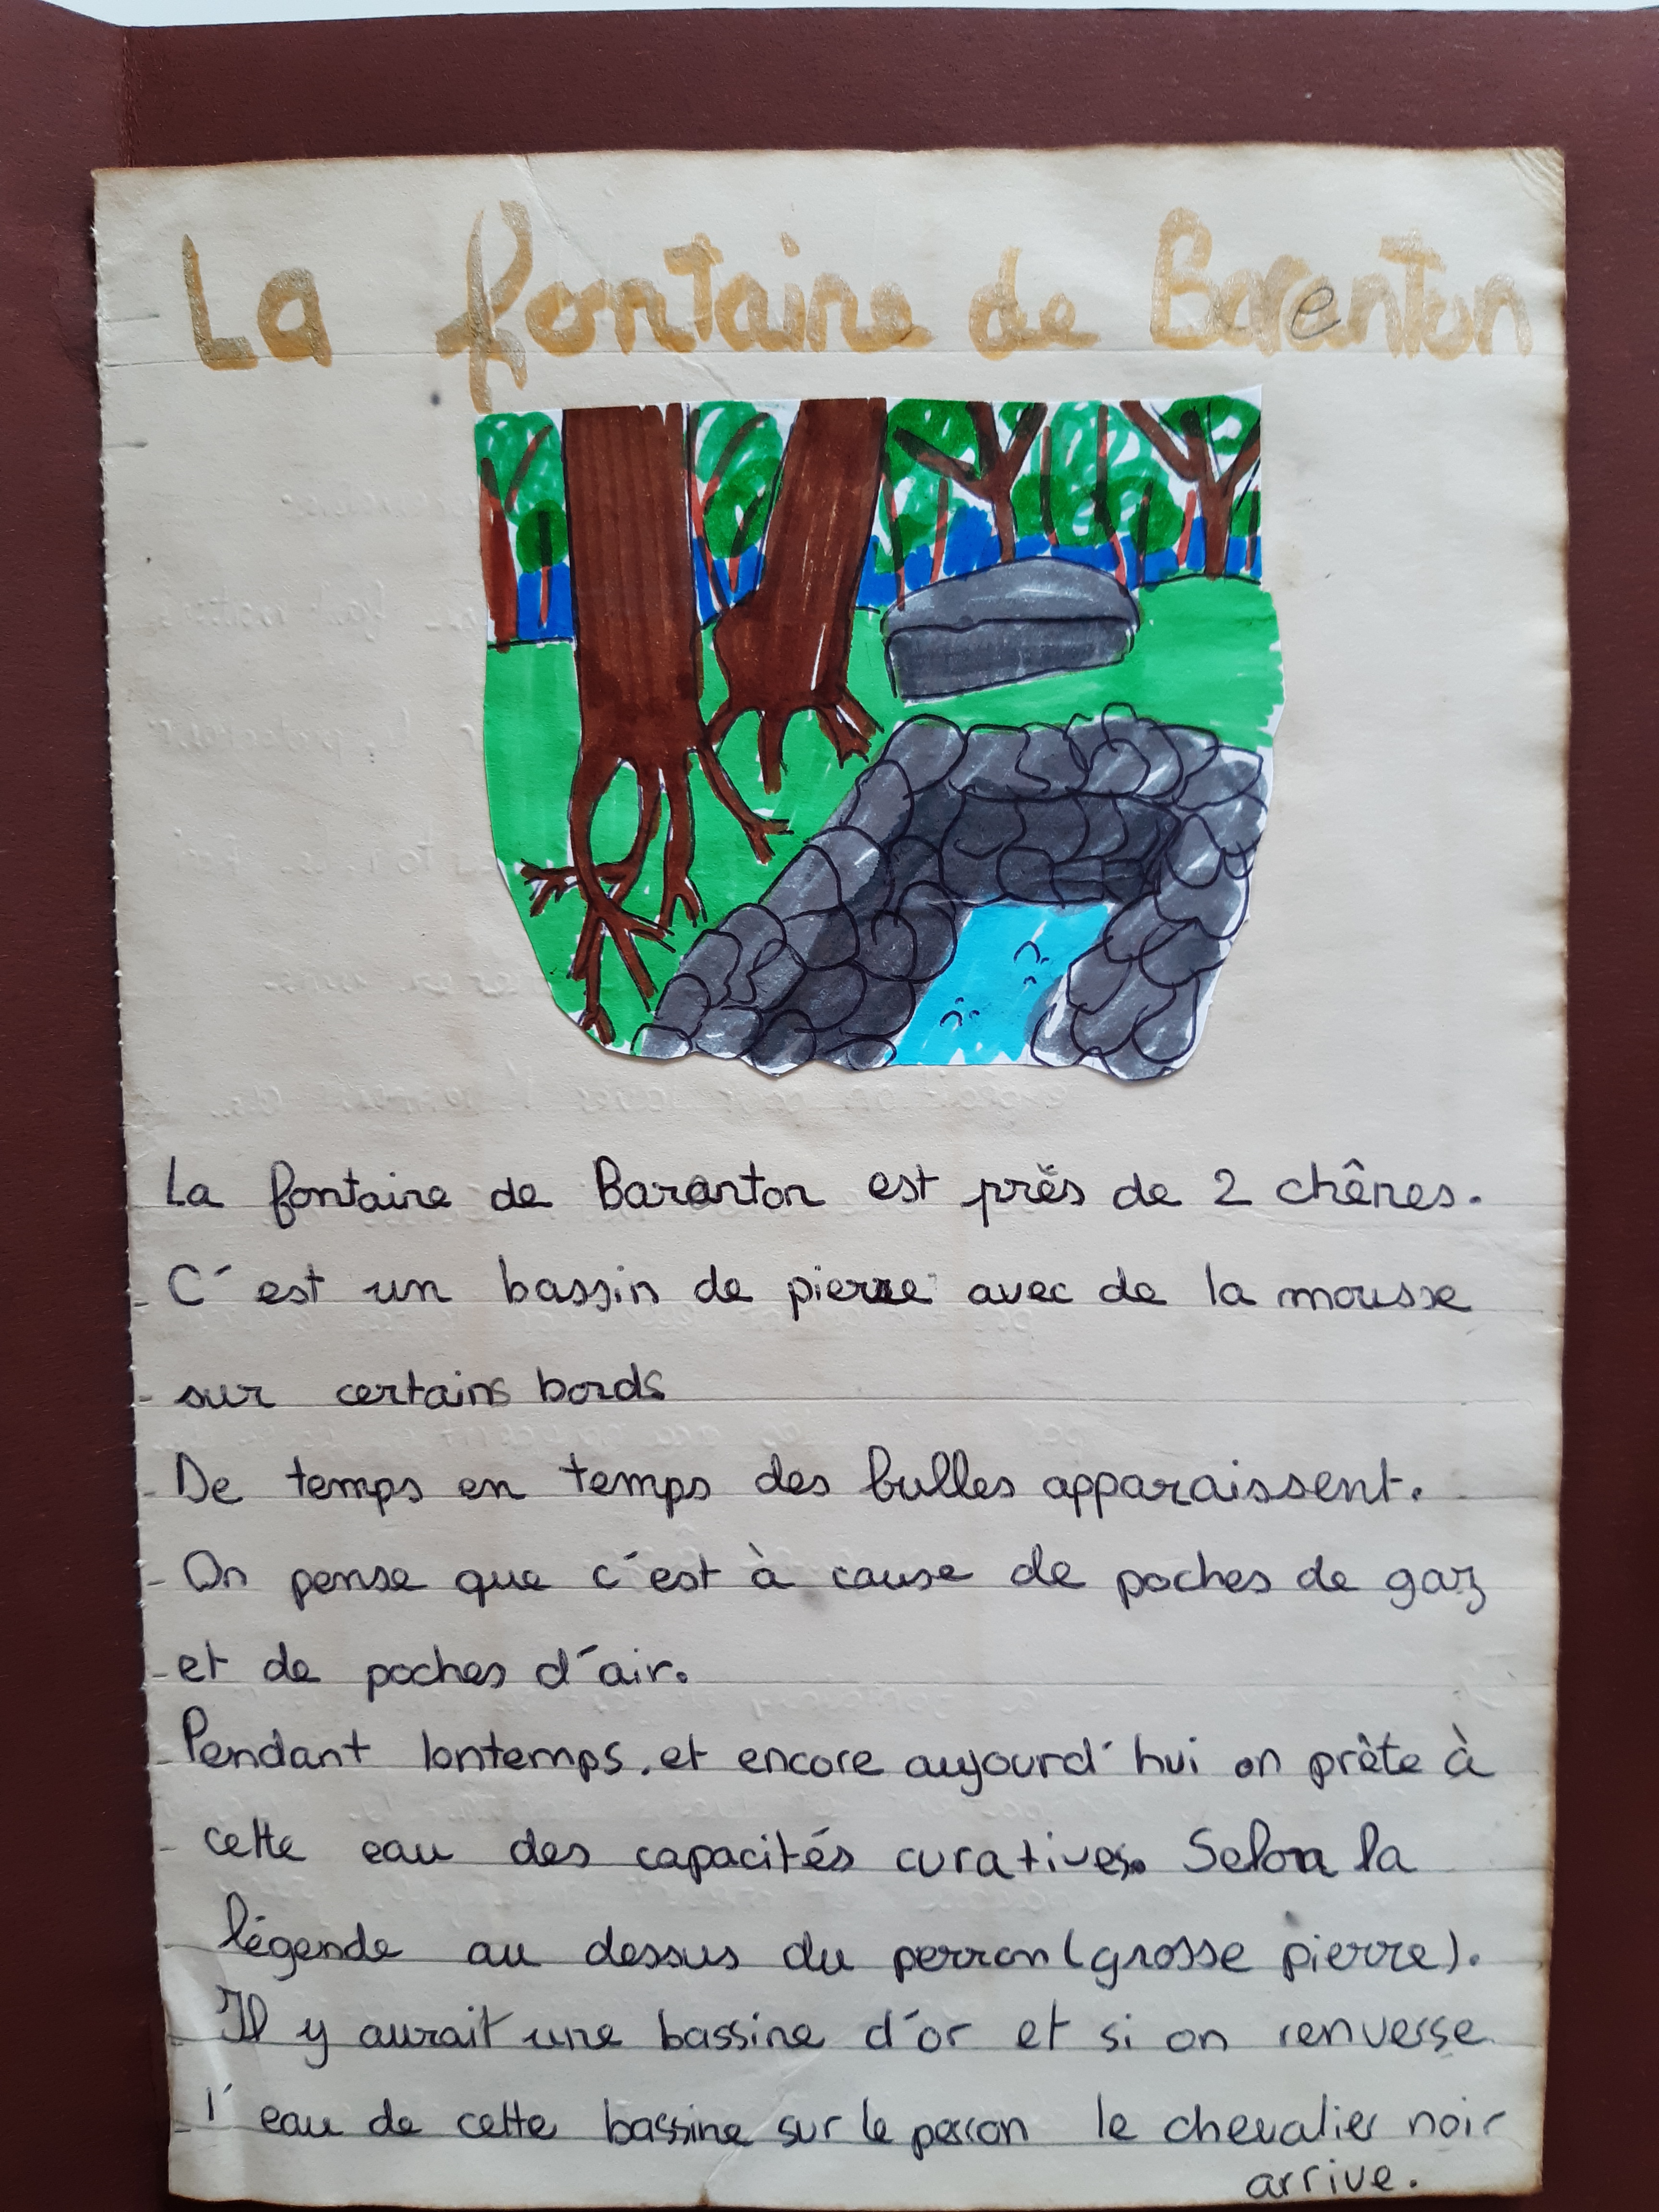 La fontaine de Barenton
La fontaine de Baranton est près de 2 chênes.
C'est un bassin de pierre avec de la mousse
sur certains bords
De temps en temps des bulles apparaissent.
On pense que c'est à cause de poches de gaz
et de poches d'air.
Pendant lontemps, et encore aujourd'hui on prête à
cette eau des capacités curatives. Selon la
légende au dessus du perron (grosse pierre).
Il y aurait une bassine d'or et si on renverse
l'eau de cette bassine sur le perron le chevalier noir
arrive.